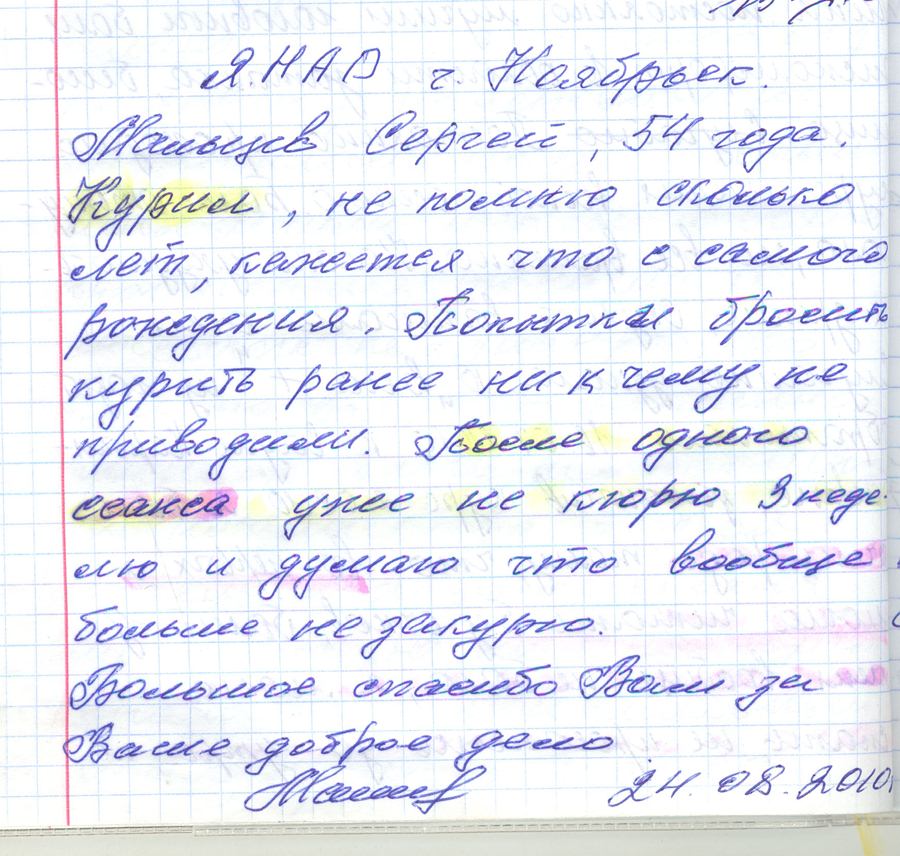 ЯНАО г. Ноябрьск.
Мальцев Сергей, 54 года.
Курил, не помню сколько
лет, кажется что с самого
рождения. Попытки бросить
курить ранее ни к чему не
приводили. После одного
сеанса уже не кюрю 3 неде-
лю и думаю что вообще
больше не закурю.
Большое спасибо Вам за
Ваше доброе дело
24.08.2010